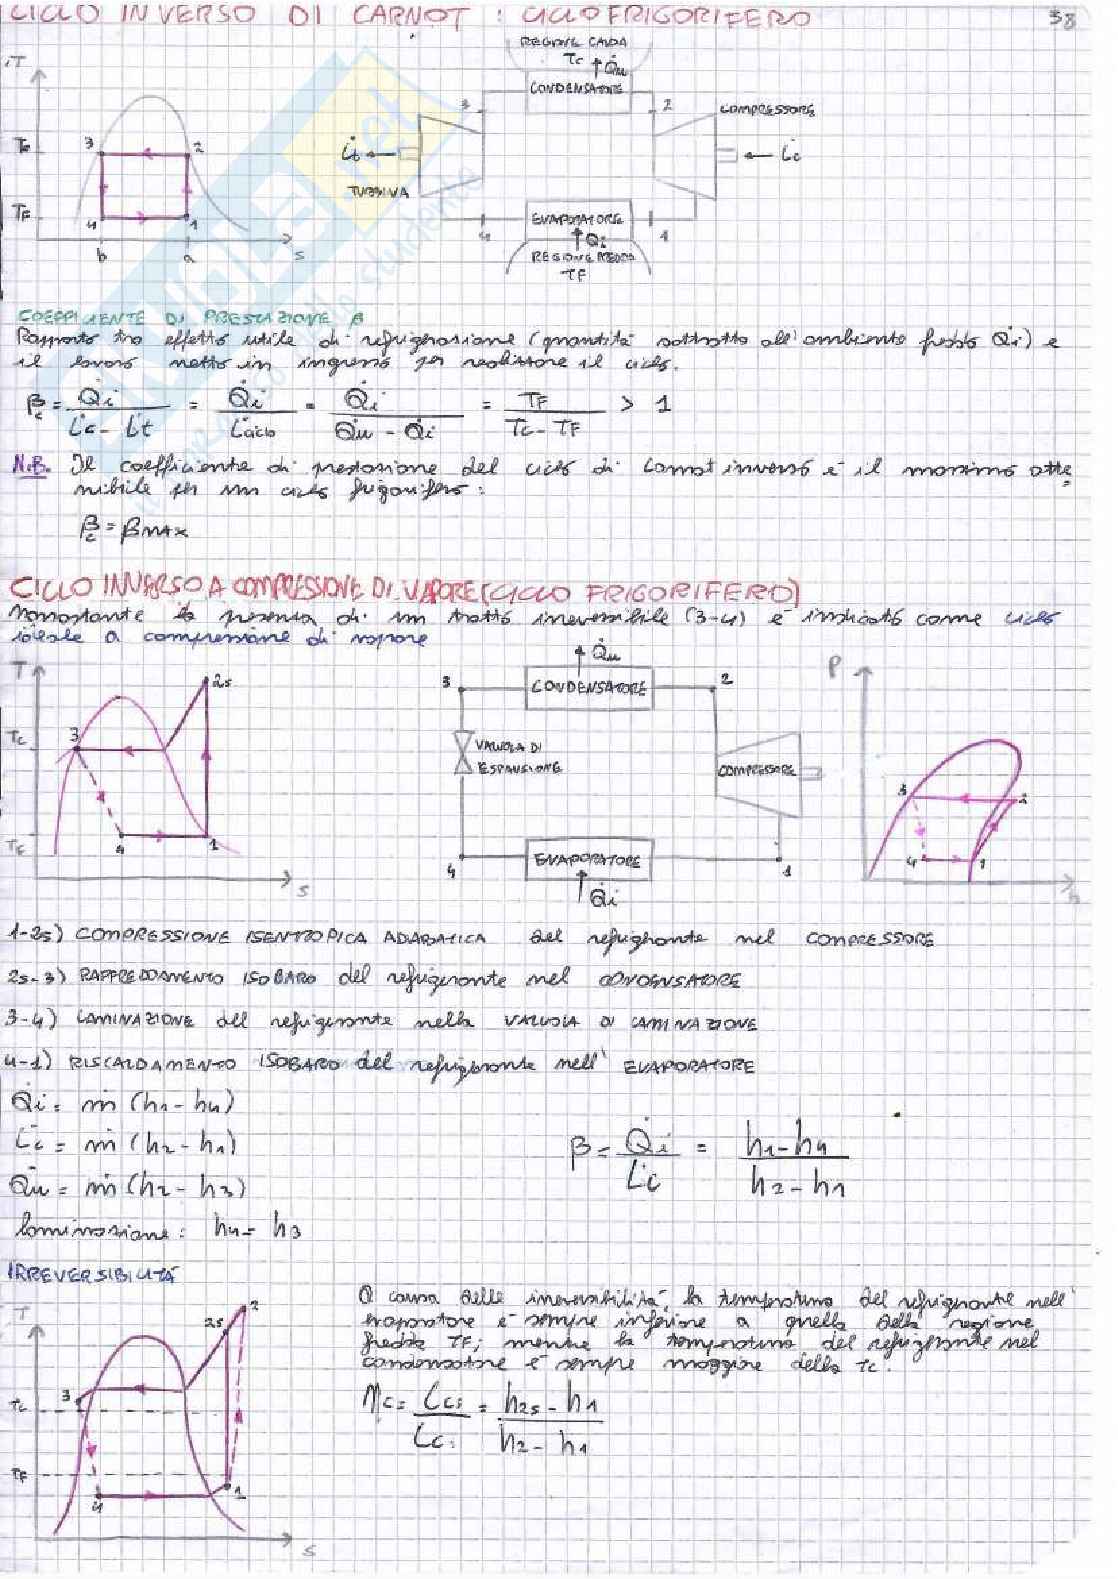 CICLO INVERSO DI CARNOT : CICLO FRIGORIFERO 38
T
3 2
Tc
TF
4 1
b a s
REGIONE CALDA
Tc Q̇u
CONDENSATORE
3 2
COMPRESSORE
L̇t L̇c
TURBINA
EVAPORATORE
4 1
Q̇i
REGIONE FREDDA
TF
COEFFICIENTE DI PRESTAZIONE β
Rapporto tra effetto utile di refrigerazione (quantità sottratta all'ambiente freddo Q̇i) e
il lavoro netto in ingresso per realizzare il ciclo.
βc = Q̇i / (L̇c - L̇t) = Q̇i / L̇ciclo = Q̇i / (Q̇u - Q̇i) = TF / (Tc - TF) > 1
N.B. Il coefficiente di prestazione del ciclo di Carnot inverso è il massimo otte
nibile per un ciclo frigorifero:
βc = βMAX
CICLO INVERSO A COMPRESSIONE DI VAPORE (CICLO FRIGORIFERO)
Nonostante la presenza di un tratto irreversibile (3-4) è indicato come ciclo
ideale a compressione di vapore
T
2s
Tc 3
Tc
4 1
s
Q̇u
3 CONDENSATORE 2
VALVOLA DI
ESPANSIONE
COMPRESSORE
EVAPORATORE
4 1
Q̇i
P
3 2
4 1
h
1-2s) COMPRESSIONE ISENTROPICA ADIABATICA del refrigerante nel COMPRESSORE
2s-3) RAFFREDDAMENTO ISOBARO del refrigerante nel CONDENSATORE
3-4) LAMINAZIONE del refrigerante nella VALVOLA DI LAMINAZIONE
4-1) RISCALDAMENTO ISOBARO del refrigerante nell' EVAPORATORE
Q̇i = ṁ (h1 - h4)
L̇c = ṁ (h2 - h1)
β = Q̇i / L̇c = (h1 - h4) / (h2 - h1)
Q̇u = ṁ (h2 - h3)
laminazione: h4 = h3
IRREVERSIBILITÀ
A causa delle irreversibilità, la temperatura del refrigerante nell'
evaporatore è sempre inferiore a quella della regione
fredda TF; mentre la temperatura del refrigerante nel
condensatore è sempre maggiore della Tc.
ηc = L̇cs / L̇c = (h2s - h1) / (h2 - h1)
T
2s 2
3
Tc
TF
4 1
s